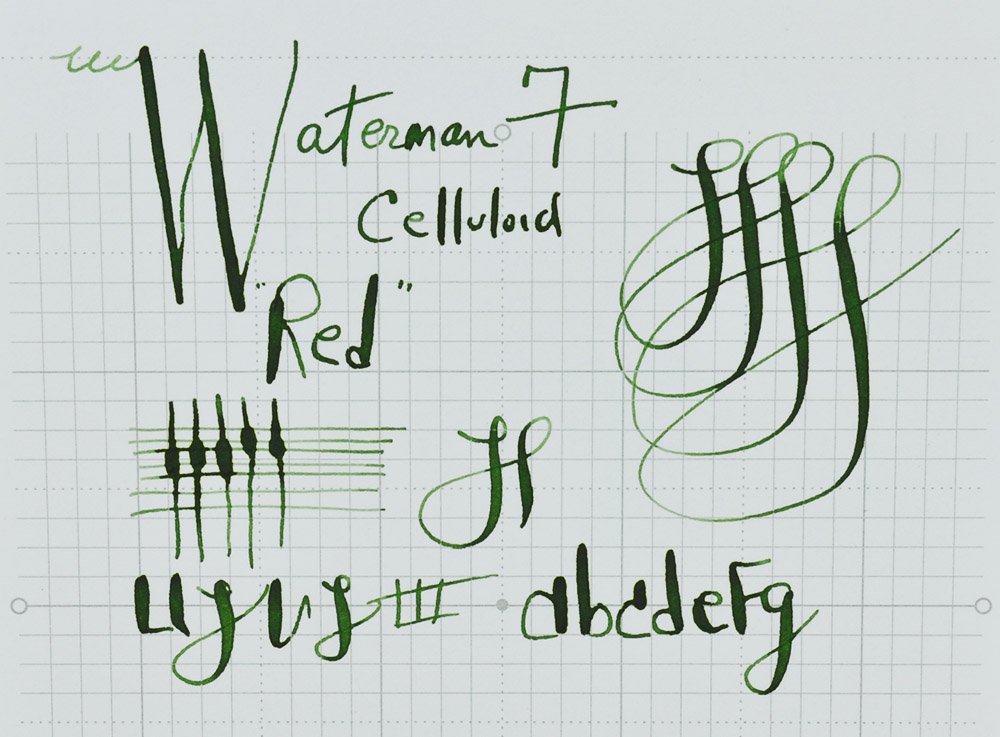 Waterman 7
Celluloid
"Red"
abcdefg